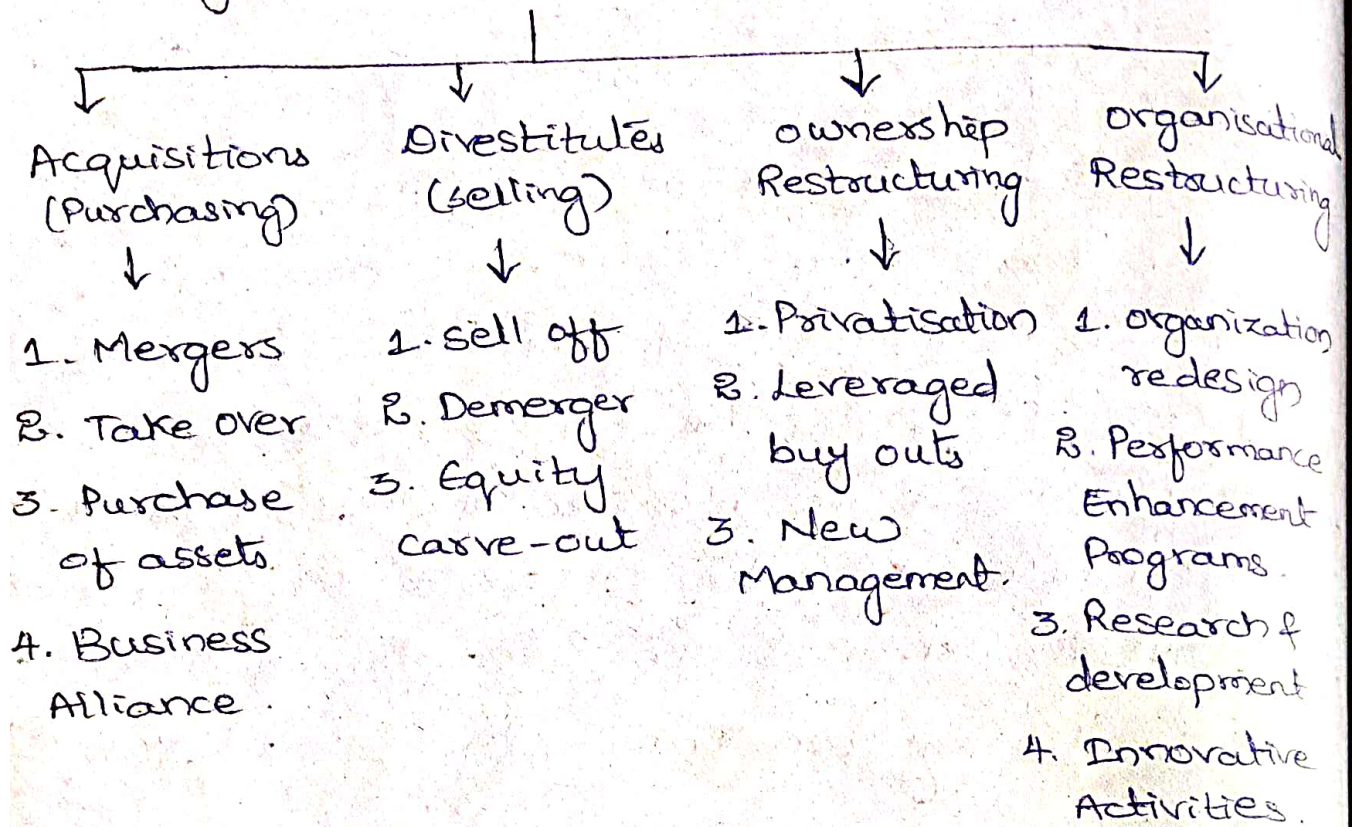 Acquisitions
(Purchasing)
1. Mergers
2. Take over
3. Purchase
of assets.
4. Business
Alliance.
Divestitules
(selling)
1. sell off
2. Demerger
3. Equity
carve-out
ownership
Restructuring
1. Privatisation
2. Leveraged
buy outs
3. New
Management.
organisational
Restructuring
1. organization
redesign
2. Performance
Enhancement
Programs.
3. Research &
development
4. Innovative
Activities.